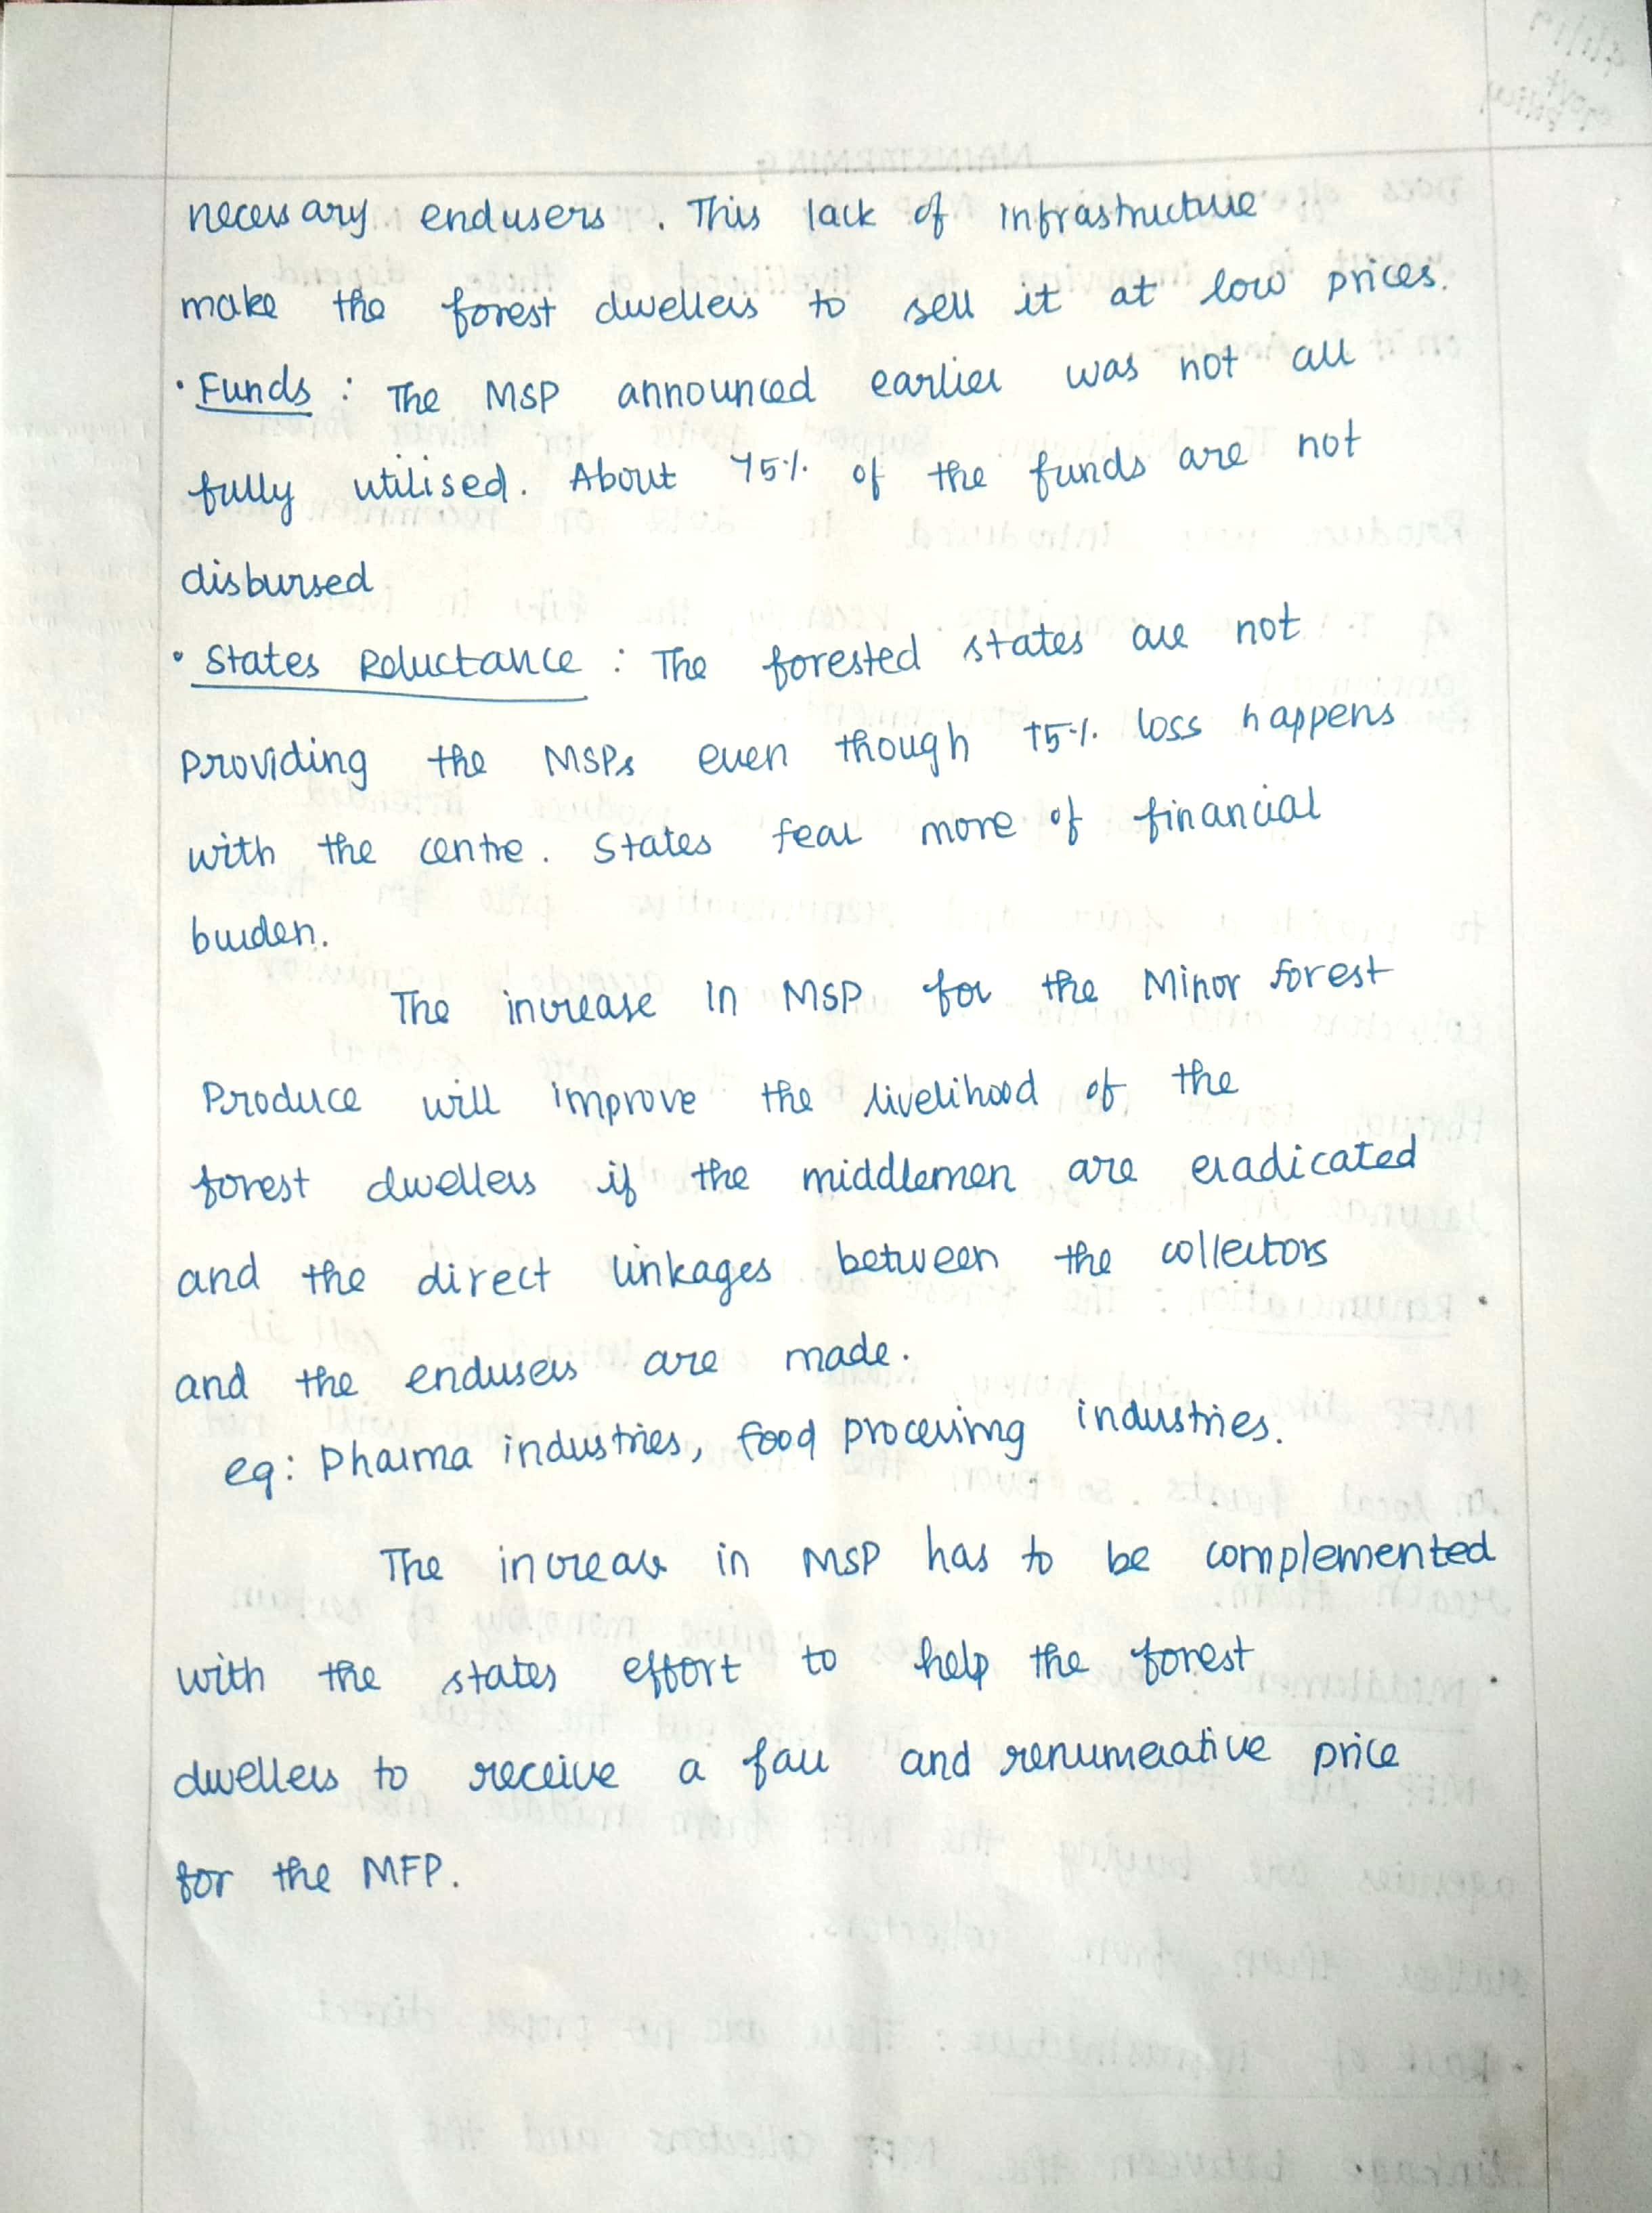 necessary endusers . This lack of infrastructure
make the forest dwellers to sell it at low prices.
• Funds : The MSP announced earlier was not all
fully utilised. About 75% of the funds are not
disbursed
• States Reluctance : The forested states are not
providing the MSPs even though 75% loss happens
with the centre. States fear more of financial
burden.
The increase in MSP for the Minor forest
Produce will improve the livelihood of the
forest dwellers if the middlemen are eradicated
and the direct linkages between the collectors
and the endusers are made.
eg: Pharma industries, food processing industries.
The increase in MSP has to be complemented
with the states effort to help the forest
dwellers to receive a fair and renumerative price
for the MFP.